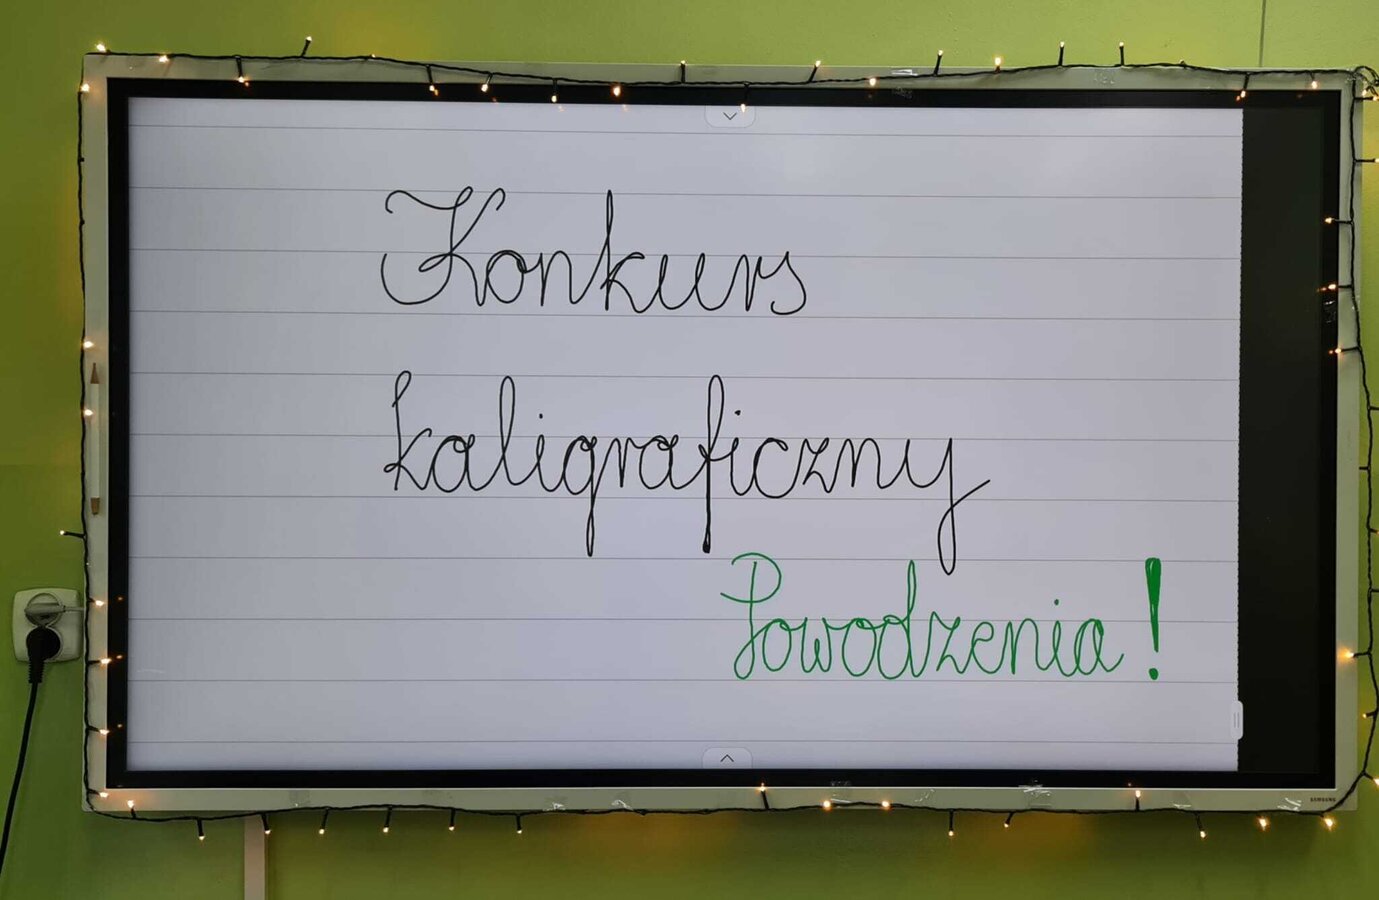 Konkurs
kaligraficzny
Powodzenia!
SAMSUNG